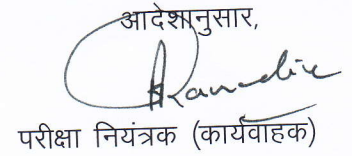 आदेशानुसार,
परीक्षा नियंत्रक (कार्यवाहक)